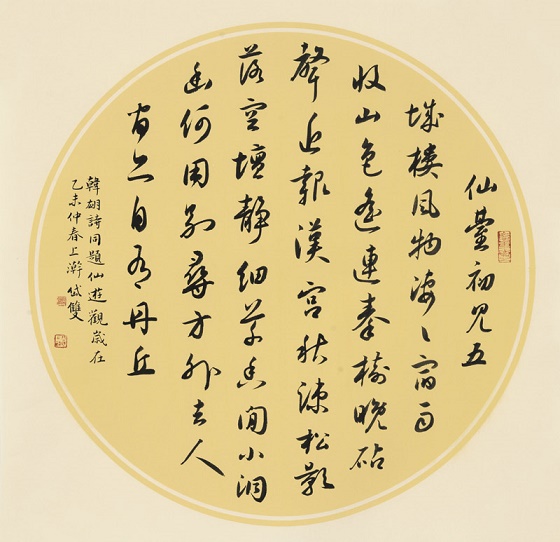 仙臺初見五
城樓風物淒〻宿雨
收山色遙連秦樹晚砧
聲近報漢宮秋疎松影
落空壇靜細草香閒小洞
幽何用別尋方外去人
間亦自有丹丘
韓翃詩同題仙遊觀歲在
乙未仲春上澣 雙